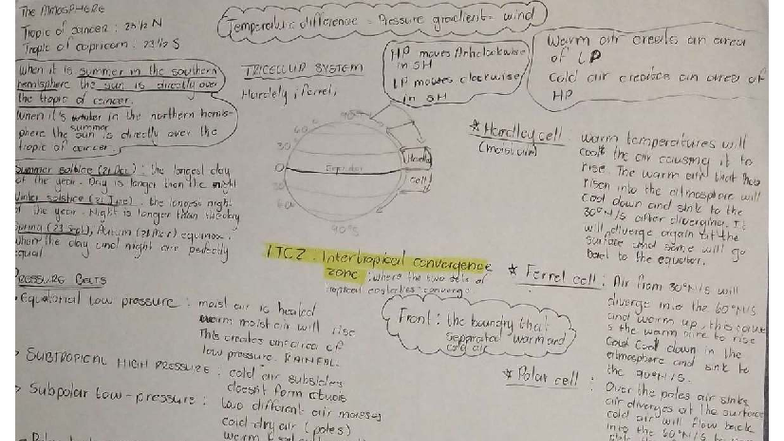 The Atmosphere
Tropic of cancer : 23 1/2 N
Tropic of capricorn : 23 1/2 S
When it is summer in the southern
hemisphere the sun is directly over
the tropic of cancer.
When it's winter in the northern hemis-
phere the sun is directly over the
summer
tropic of cancer.
Summer solstice (21 Dec) : the longest day
of the year. Day is longer than the night
Winter solstice (21 June) : the longest night
of the year. Night is longer than the day
Spring (23 Sept), Autumn (21 Mar) equinox :
when the day and night are perfectly
equal
PRESSURE BELTS
Equatorial low pressure : moist air is heated
warm moist air will rise
This creates an area of
low pressure. RAINFALL
SUBTROPICAL HIGH PRESSURE : cold air subsides
doesn't form clouds
Subpolar low-pressure : two different air masses
cold dry air (poles)
Temperature difference = Pressure gradient = wind
TRICELLULAR SYSTEM
Hardely, Ferrel,
HP moves Anticlockwise
in SH
LP moves clockwise
in SH
Warm air creates an area
of LP
Cold air creates an area of
HP
90°N
60
30
0
30
60
90°S
Equator
Hardley
Cell
ITCZ : Intertropical convergence
zone : where the two sets of
tropical easterlies converg.
Front : the boundry that
separated warm and
cold air
* Hardley cell
warm temperatures will
the air causing it to
rise. The warm air that has
risen into the atmosphere will
cool down and sink to the
30°N/S after diverging. It
will diverge again at the
surface and some will go
back to the equator.
* Ferrel cell : Air from 30°N/S will
diverge into the 60°N/S
and warm up, this cause
s the warm air to rise
cool down in the
atmosphere and sink to
the
* Polar cell : Over the poles air sinks
air diverges at the surface
cold air will flow back
into the 60°N/S